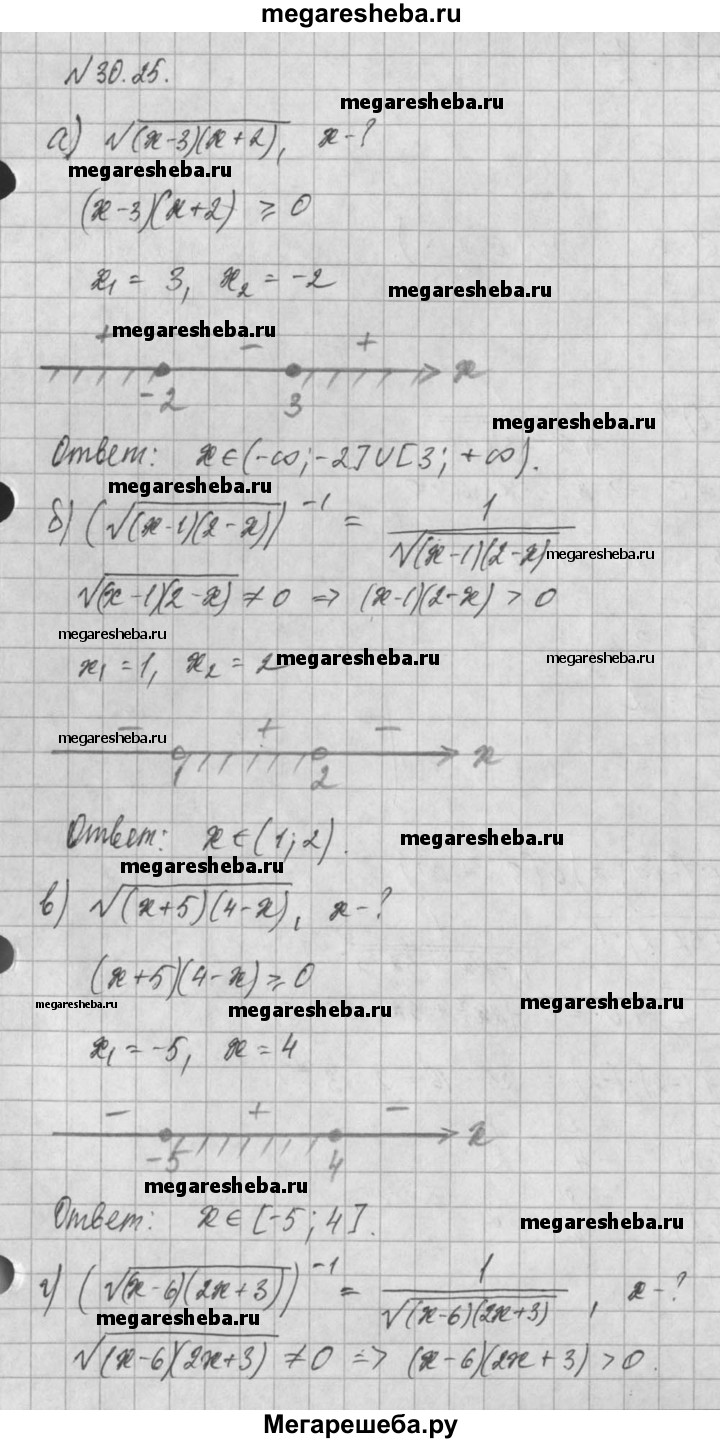 megaresheba.ru
N 30.25.
megaresheba.ru
а) √(x-3)(x+2), x-?
megaresheba.ru
(x-3)(x+2) ⩾ 0
x₁ = 3, x₂ = -2
megaresheba.ru
megaresheba.ru
+ - +
-2 3 x
megaresheba.ru
Ответ: x∈(-∞;-2]∪[3;+∞).
megaresheba.ru
б) (√(x-1)(2-x))⁻¹ = 1/√(x-1)(2-x)
megaresheba.ru
√(x-1)(2-x) ≠ 0 => (x-1)(2-x) > 0
megaresheba.ru
x₁ = 1, x₂ = 2
megaresheba.ru
megaresheba.ru
- + -
megaresheba.ru
1 2 x
Ответ: x∈(1;2).
megaresheba.ru
megaresheba.ru
в) √(x+5)(4-x), x-?
(x+5)(4-x) ⩾ 0
megaresheba.ru
megaresheba.ru
megaresheba.ru
x₁ = -5, x = 4
- + -
-5 4 x
megaresheba.ru
Ответ: x∈[-5;4].
megaresheba.ru
г) (√(x-6)(2x+3))⁻¹ = 1/√(x-6)(2x+3), x-?
megaresheba.ru
√(x-6)(2x+3) ≠ 0 => (x-6)(2x+3) > 0.
Мегарешеба.ру